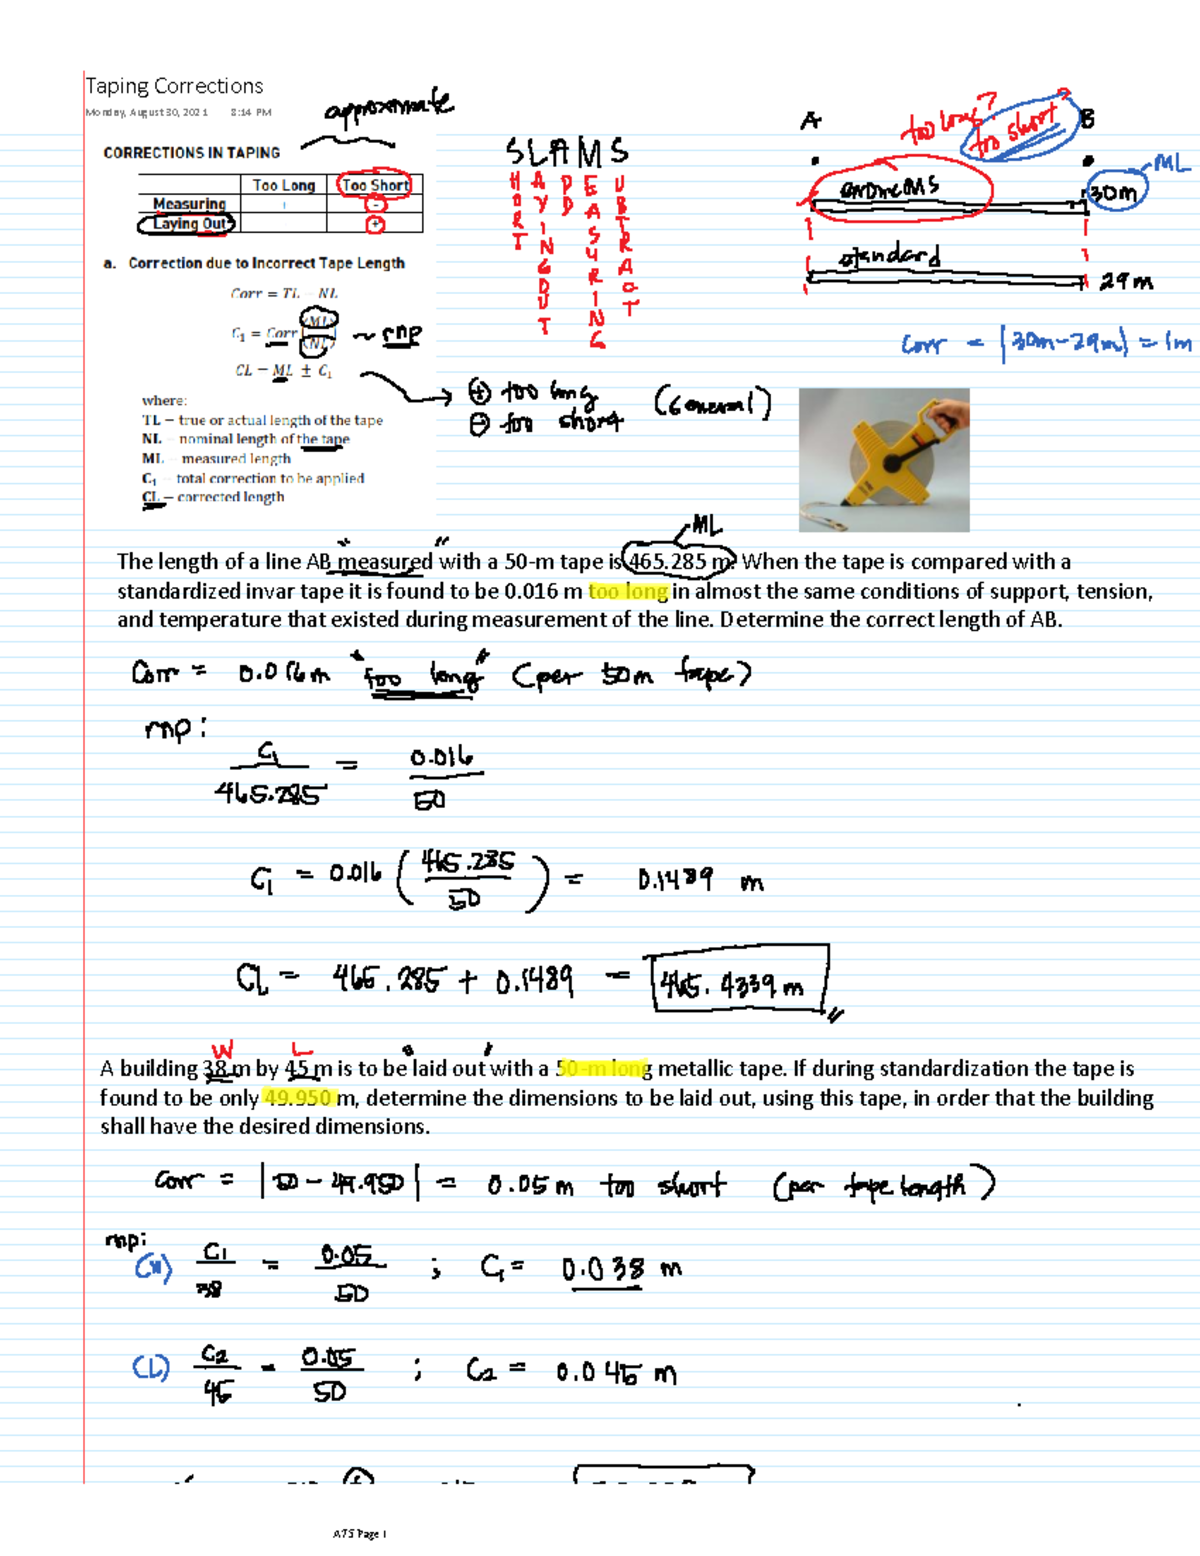 Taping Corrections
Monday, August 30, 2021 8:14 PM
approximate
CORRECTIONS IN TAPING
Too Long Too Short
Measuring + -
Laying Out +
a. Correction due to Incorrect Tape Length
Corr = TL - NL
C₁ = Corr (ML) / (NL) ~ rnp
CL = ML ± C₁
where:
TL – true or actual length of the tape
NL – nominal length of the tape
ML – measured length
C₁ – total correction to be applied
CL – corrected length
SLAMS
SHORT
LAYINGOUT
ADD
MEASURING
SUBTRACT
A too long? too short? B
ML
30m
standard
29m
Corr = |30m-29m| = 1m
⊕ too long (General)
⊖ too short
ML
The length of a line AB "measured" with a 50-m tape is 465.285 m. When the tape is compared with a
standardized invar tape it is found to be 0.016 m too long in almost the same conditions of support, tension,
and temperature that existed during measurement of the line. Determine the correct length of AB.
Corr = 0.016m "too long" (per 50m tape)
rnp:
C₁ / 465.285 = 0.016 / 50
C₁ = 0.016 (465.285 / 50) = 0.1489 m
CL = 465.285 + 0.1489 = 465.4339 m
W L
A building 38 m by 45 m is to be laid out with a 50-m long metallic tape. If during standardization the tape is
found to be only 49.950 m, determine the dimensions to be laid out, using this tape, in order that the building
shall have the desired dimensions.
Corr = |50 - 49.950| = 0.05m too short (per tape length)
rnp:
(W) C₁ / 38 = 0.05 / 50 ; C₁ = 0.038 m
(L) C₂ / 45 = 0.05 / 50 ; C₂ = 0.045 m
A75 Page 1